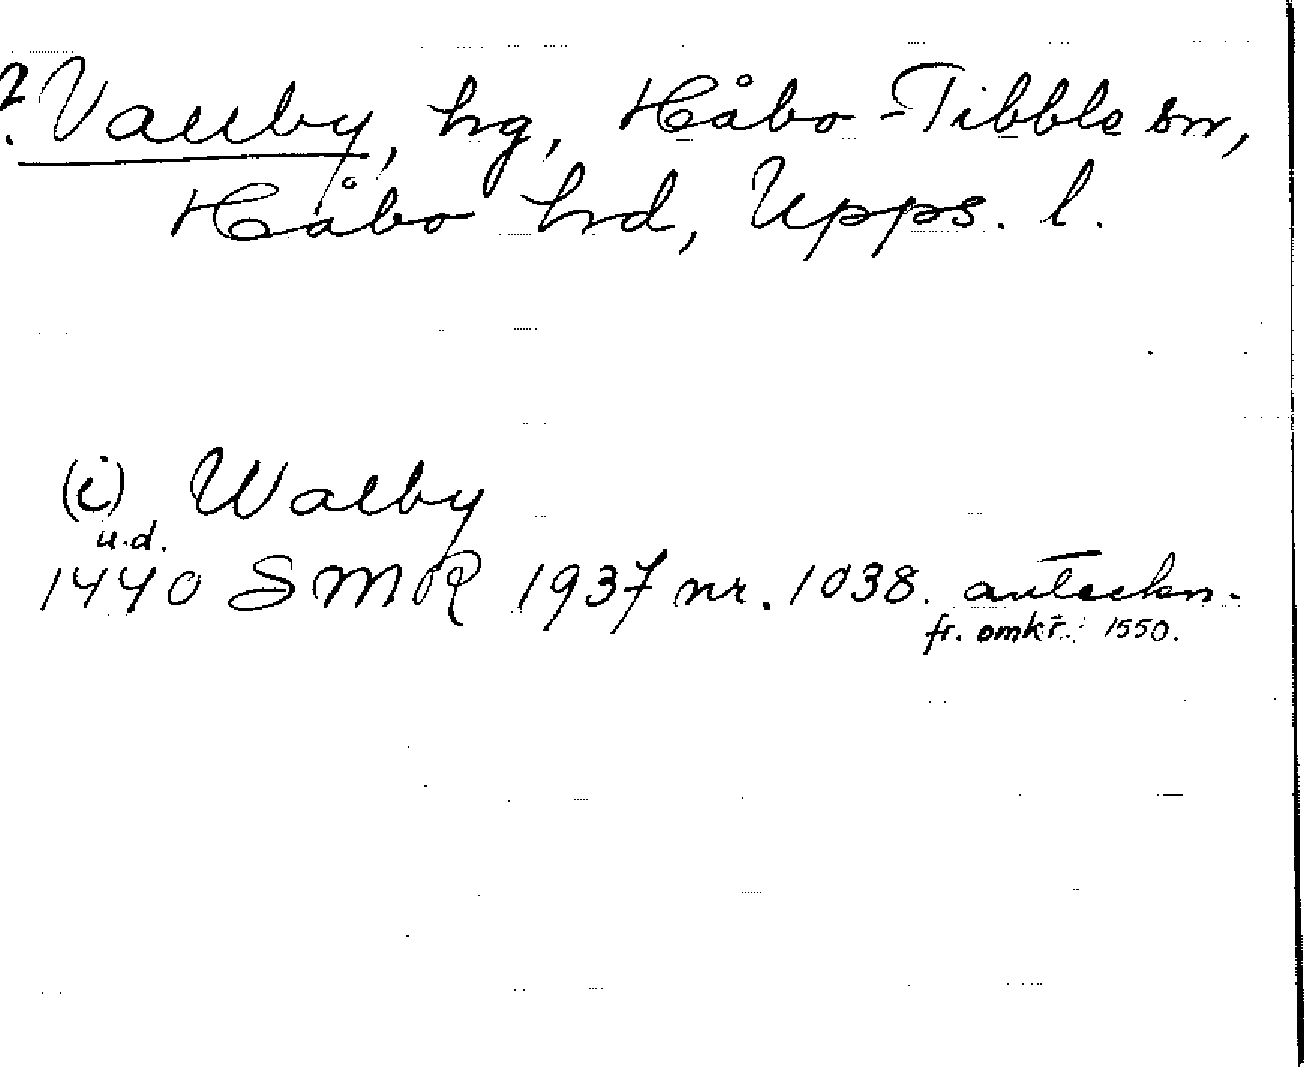 ?. Vallby, hg, Håbo-Tibble sn,
Håbo hrd, Upps. l.
(i) Walby
u.d.
1440 SMR 1937 nr. 1038. anteckn.
fr. omkr. 1550.